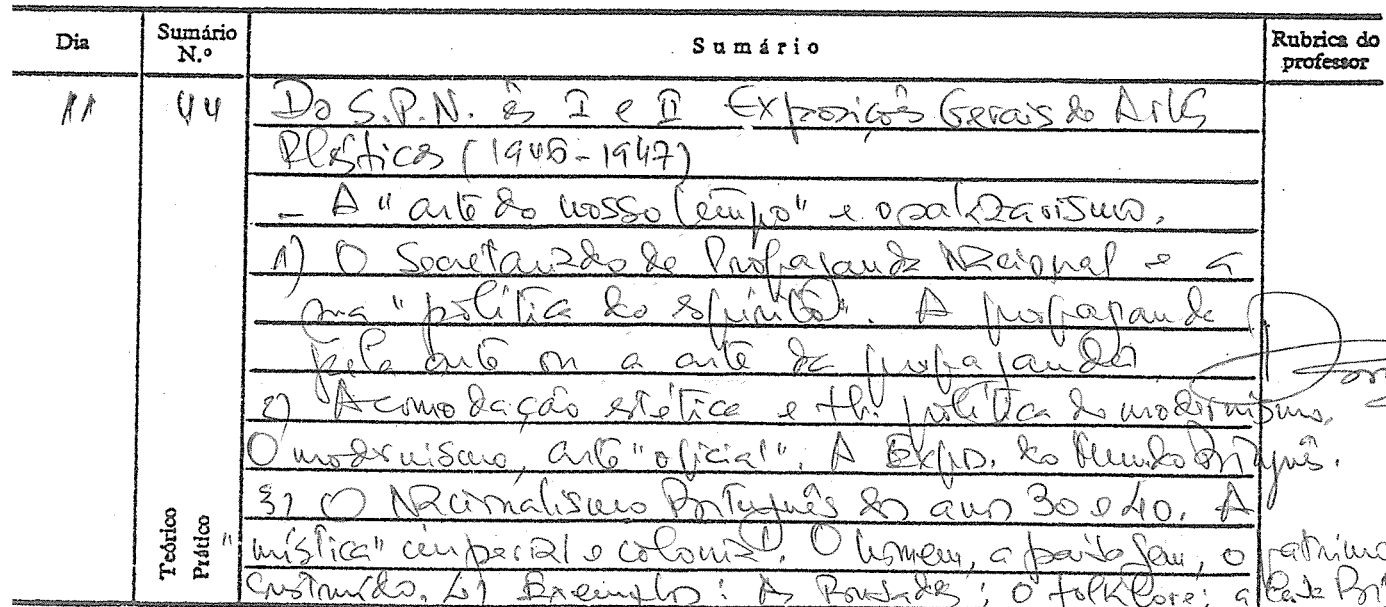 Dia Sumário N.º Sumário Rubrica do professor
11 44 Do S.P.N. às I e II Exposições Gerais de Artes
Plásticas (1946-1947)
- A "arte do nosso tempo" e o salazarismo.
1) O Secretariado de Propaganda Nacional e a
sua "política do espírito". A propaganda
pela arte ou a arte da propaganda
2) Acomodação estética e tb. política do modernismo.
O modernismo, arte "oficial". A Expo. do Mundo Português.
3) O Nacionalismo Português dos anos 30 e 40. A
"mística" imperial e colonial. O homem, a paisagem, o
construído. Exemplos: As Pousadas; O folklore; a
Teórico
Prático